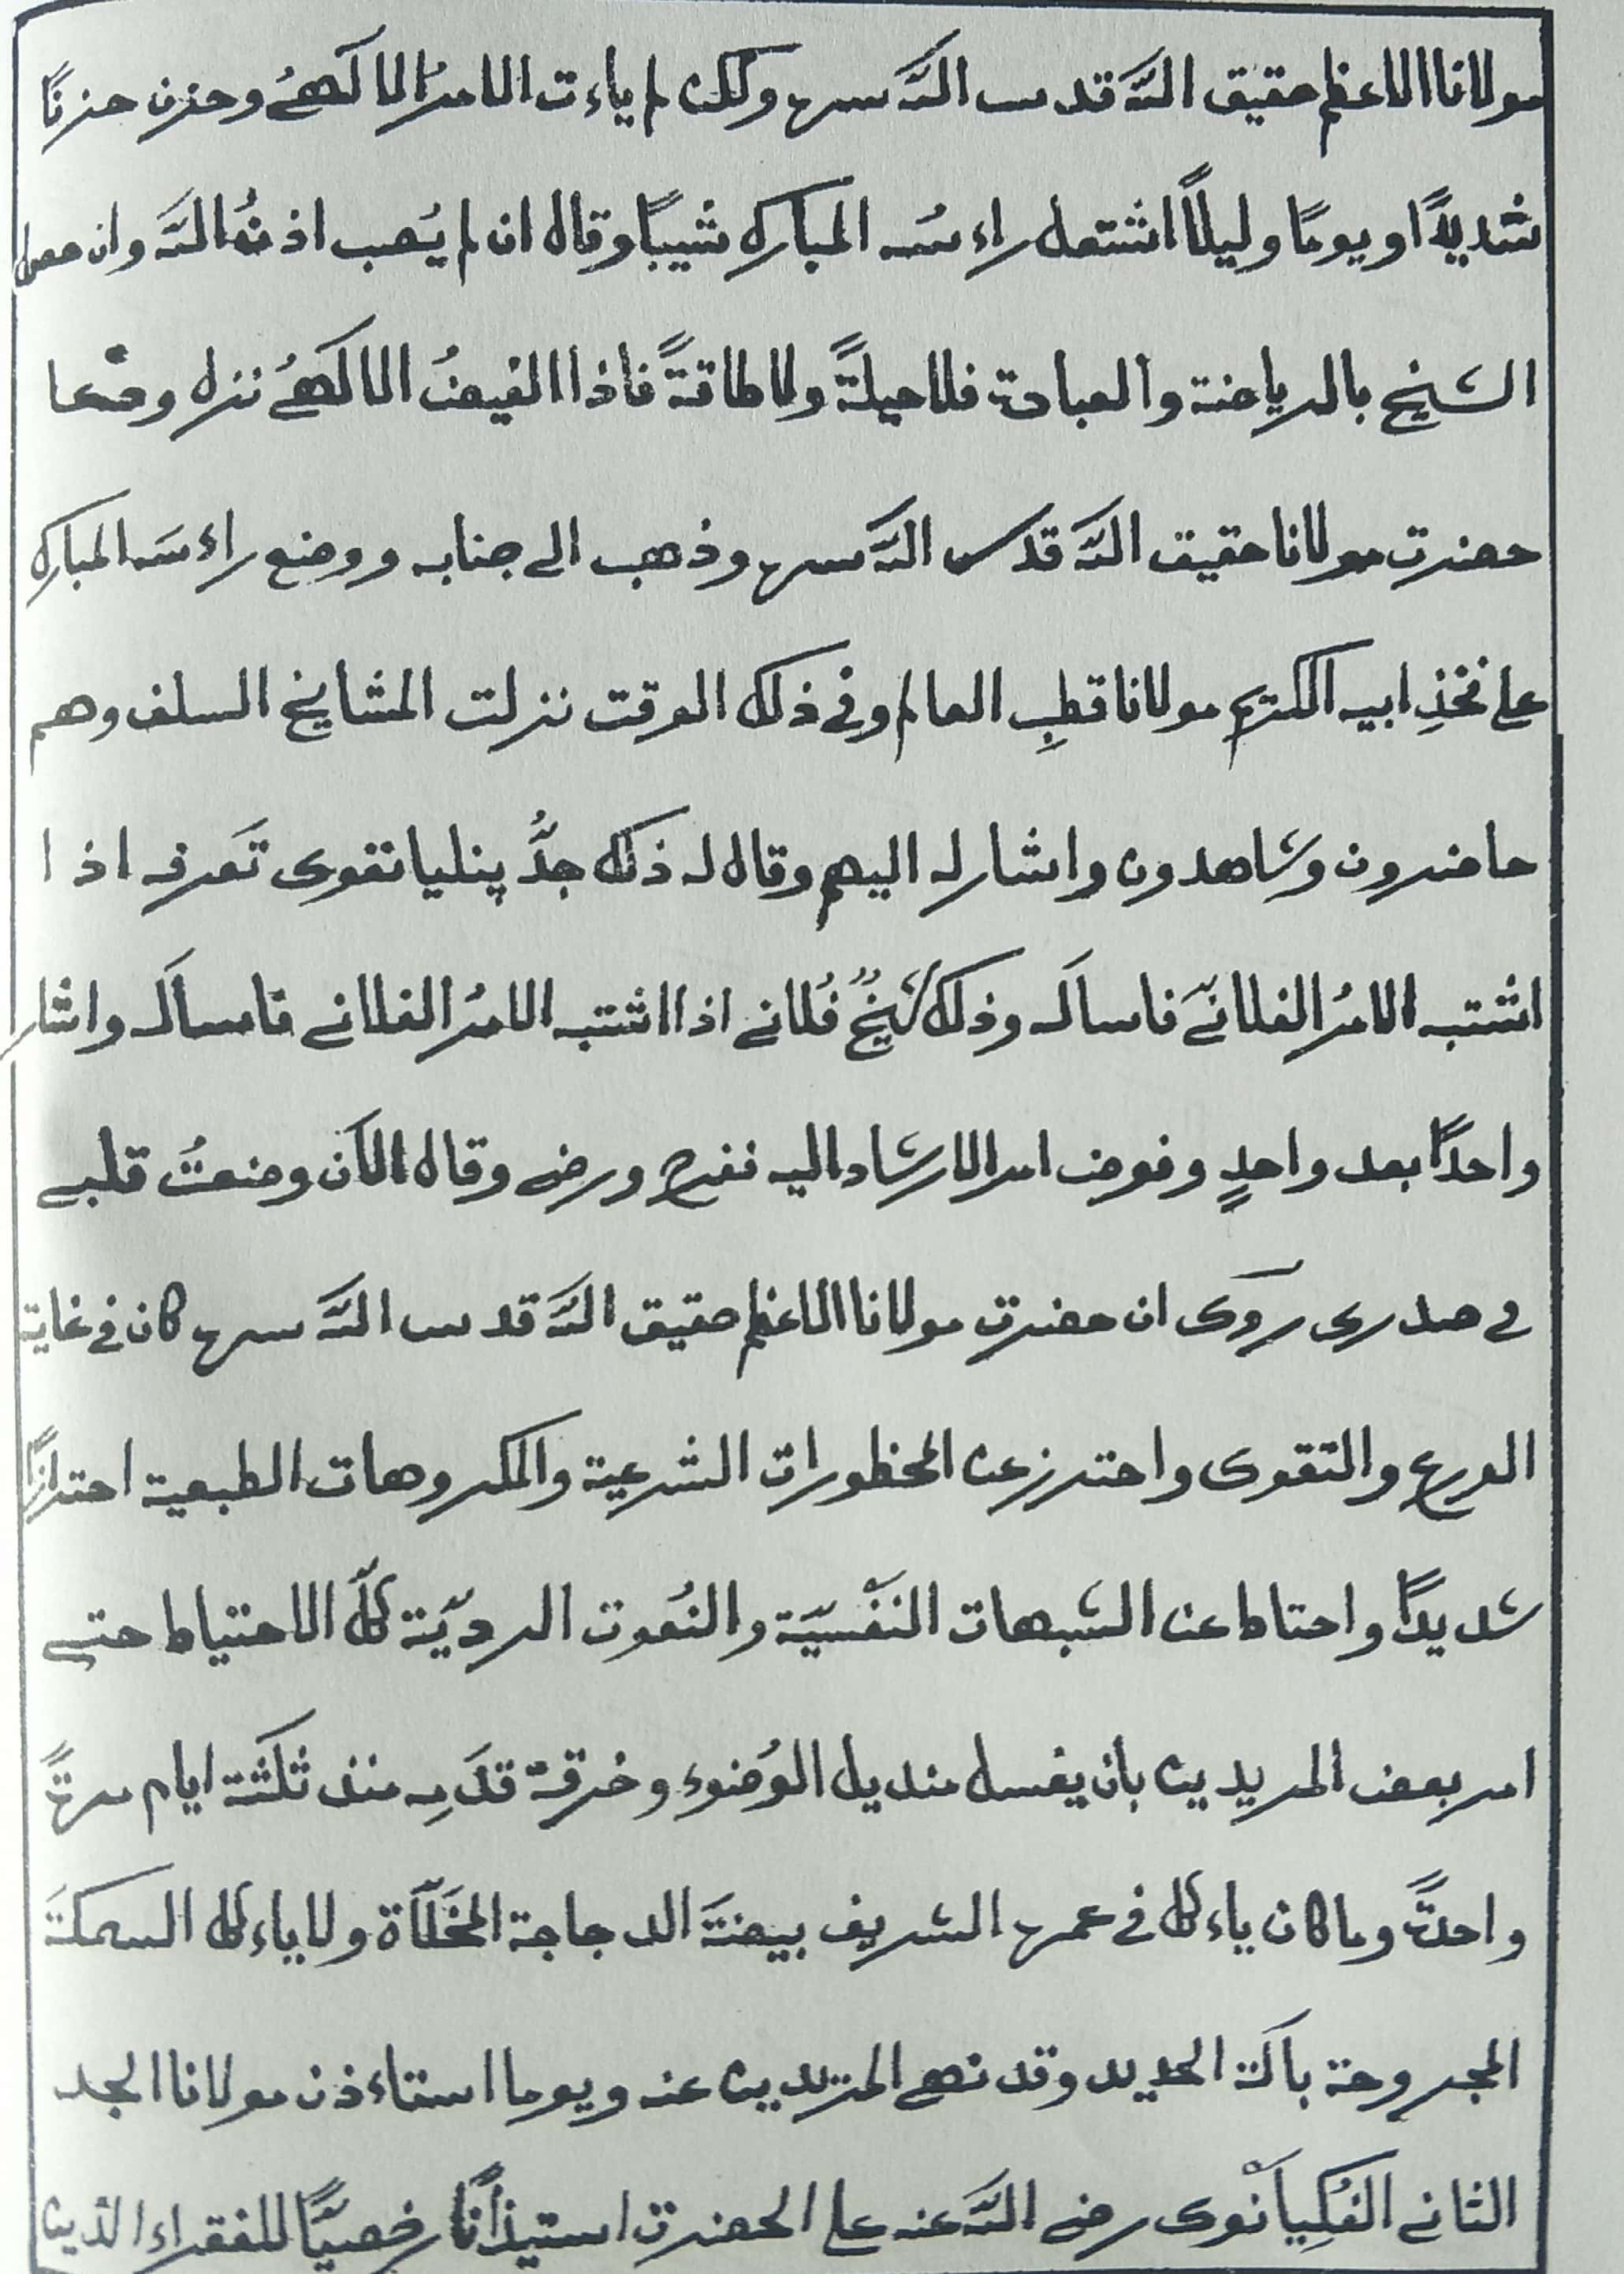 مولانا الاعظم حقيق اللّٰه قدس اللّٰه سره ولكن لم ياءت الامرُ الالٰهيُ وحزن حزنًا
شديدًا ويومًا وليلًا اشتعل راءسُه المبارك شيبًا وقال ان لم يُصب اذنُ اللّٰه وان حصل
الشيخ بالرياضة والعبادة فلا حيلةً ولا طاقةً فاذا الفيضُ الالٰهيُ نزل ودعا
حضرت مولانا حقيق اللّٰه قدس اللّٰه سره وذهب الى جنابه ووضع راءسَه المبارك
على فخذِ ابيه الكريم مولانا قطبِ العالم وفي ذلك الوقت نزلت المشايخ السلف وهم
حاضرون وشاهدون واشار له اليهم وقال له ذلك جدُّ پنليا نقوى تَعرفه اذا
اشتبه الامرُ الفلانيّ فاسأله وذلك شيخٌ فُلاني اذا اشتبه الامرُ الفلاني فاسأله واشار
واحدًا بعد واحدٍ وفوض امر الارشاد اليه ففرح ورضي وقال الآن وضعتُ قلبي
في صدرى روى ان حضرت مولانا الاعظم حقيق اللّٰه قدس اللّٰه سره كان في غاية
الورع والتقوى واحترز عن المحظورات الشرعية والمكروهات الطبعية احترازًا
شديدًا واحتاط عن الشبهات النَفْسيّة والنُعوت الرديّة كلَّ الاحتياط حتى
امر بعض المريدين بان يغسل منديل الوُضوء وخرقة قدَمِه منذ ثلٰثة ايام مرةً
واحدةً وما كان ياءكل في عمره الشريف بيضةَ الدجاجة المخَلّاة ولا ياءكل السمكةَ
المجروحة بآلة الحديد وقد نهى المريدين عنه ويوما استاءذن مولانا الجد
الثاني الفُكِيانْوى رضي اللّٰه عنه على الحضرت استيذانًا رخصيًّا للفقراء الذين